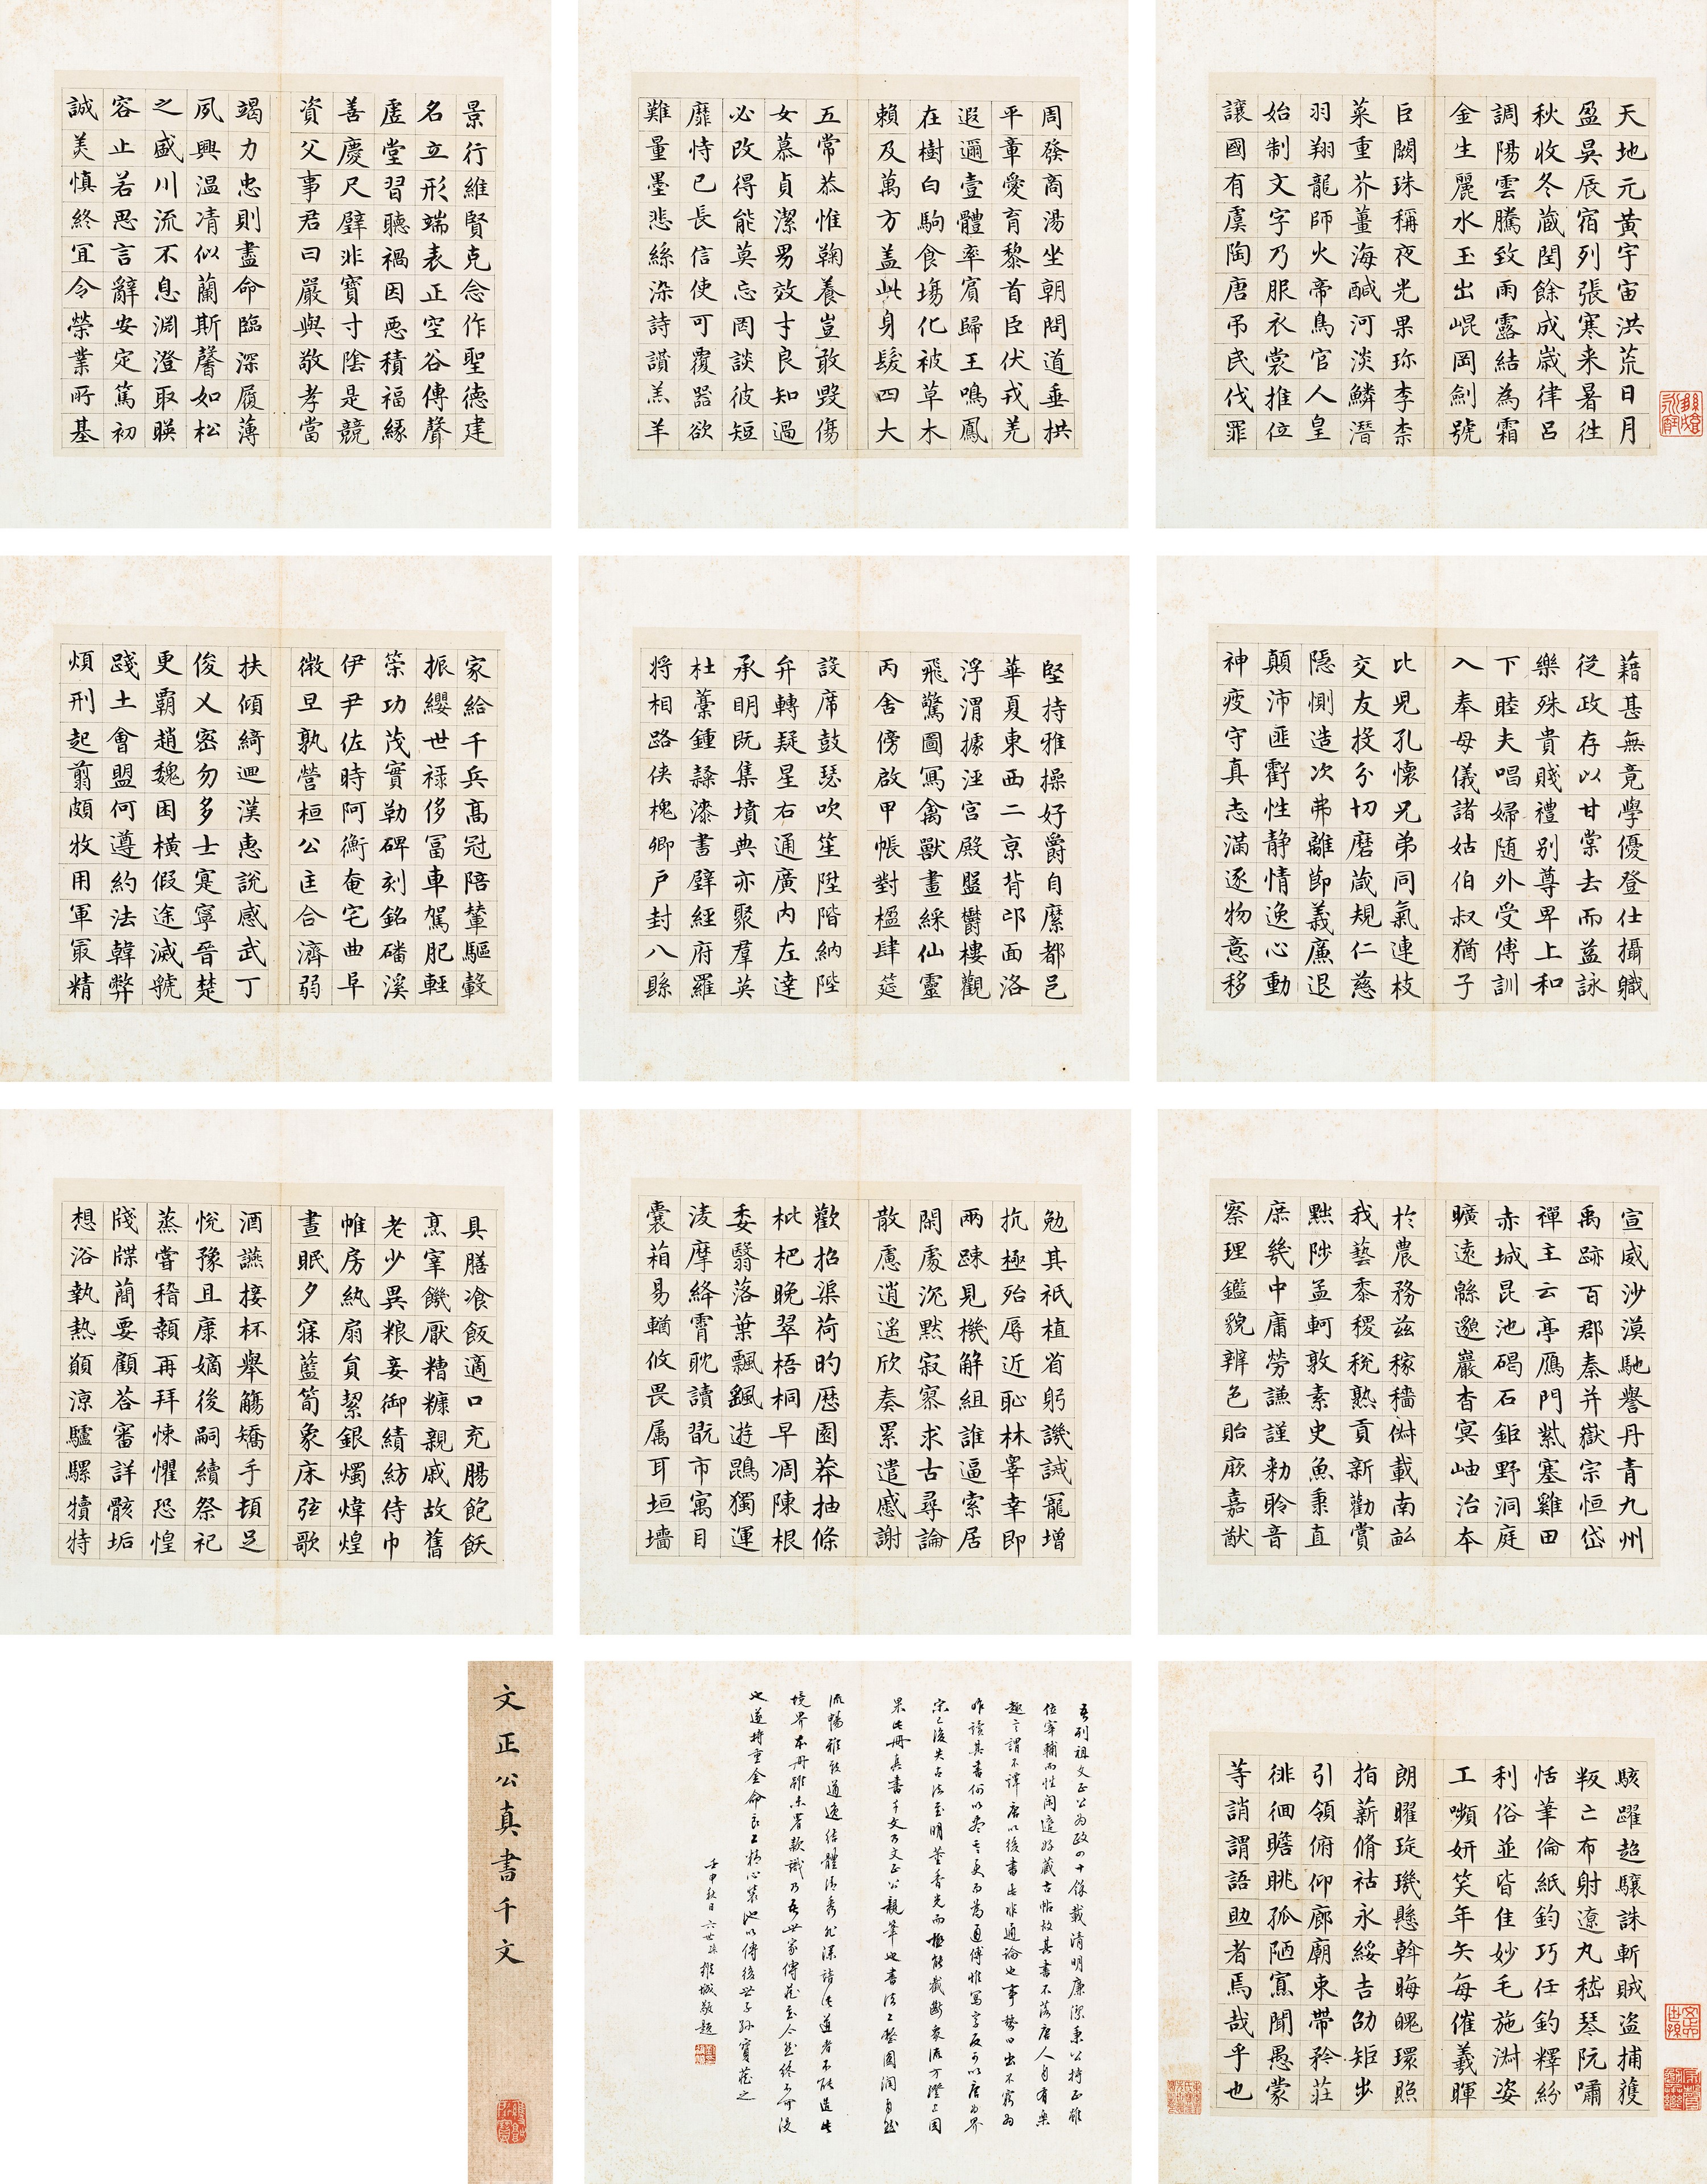 天地元黃宇宙洪荒日月
盈昃辰宿列張寒来暑往
秋收冬蔵閏餘成歲律呂
調陽雲騰致雨露結為霜
金生麗水玉出崐岡劍號
巨闕珠稱夜光果珎李柰
菜重芥薑海鹹河淡鱗潛
羽翔龍師火帝鳥官人皇
始制文字乃服衣裳推位
讓國有虞陶唐弔民伐罪
周發商湯坐朝問道垂拱
平章愛育黎首臣伏戎羌
遐邇壹體率賓歸王鳴鳳
在樹白駒食場化被草木
賴及萬方蓋此身髮四大
五常恭惟鞠養豈敢毀傷
女慕貞潔男效才良知過
必改得能莫忘罔談彼短
靡恃己長信使可覆器欲
難量墨悲絲染詩讚羔羊
景行維賢克念作聖德建
名立形端表正空谷傳聲
虛堂習聽禍因惡積福緣
善慶尺璧非寶寸陰是競
資父事君曰嚴與敬孝當
竭力忠則盡命臨深履薄
夙興温凊似蘭斯馨如松
之盛川流不息淵澄取暎
容止若思言辭安定篤初
誠美慎終宜令榮業所基
藉甚無竟學優登仕攝職
從政存以甘棠去而益詠
樂殊貴賤禮别尊卑上和
下睦夫唱婦随外受傅訓
入奉母儀諸姑伯叔猶子
比兒孔懷兄弟同氣連枝
交友投分切磨葴規仁慈
隱惻造次弗離節義廉退
顛沛匪虧性静情逸心動
神疲守真志滿逐物意移
堅持雅操好爵自縻都邑
華夏東西二京背邙面洛
浮渭據涇宮殿盤鬱樓觀
飛驚圖寫禽獸畫綵仙靈
丙舍傍啟甲帳對楹肆筵
設席鼓瑟吹笙陞階納陛
弁轉疑星右通廣內左達
承明既集墳典亦聚群英
杜藁鍾隸漆書壁經府羅
將相路俠槐卿戶封八縣
家給千兵高冠陪輦驅轂
振纓世祿侈富車駕肥輕
策功茂實勒碑刻銘磻溪
伊尹佐時阿衡奄宅曲阜
微旦孰營桓公匡合濟弱
扶傾綺迴漢惠說感武丁
俊乂密勿多士寔寧晉楚
更霸趙魏困橫假途滅虢
踐土會盟何遵約法韓弊
煩刑起翦頗牧用軍最精
宣威沙漠馳譽丹青九州
禹跡百郡秦并嶽宗恒岱
禪主云亭鴈門紫塞雞田
赤城昆池碣石鉅野洞庭
曠遠緜邈巖杳冥岫治本
於農務兹稼穡俶載南畝
我藝黍稷稅熟貢新勸賞
黜陟孟軻敦素史魚秉直
庶幾中庸勞謙謹勅聆音
察理鑑貌辨色貽厥嘉猷
勉其祇植省躬譏誡寵增
抗極殆辱近恥林睾幸即
兩疎見機解組誰逼索居
閑處沉默寂寥求古尋論
散慮逍遥欣奏累遣慼謝
歡招渠荷旳歷園莽抽條
枇杷晚翠梧桐早凋陳根
委翳落葉飄飖遊鵾獨運
凌摩絳霄耽讀翫市寓目
囊箱易輶攸畏属耳垣墻
具膳飡飯適口充腸飽飫
烹宰饑厭糟糠親戚故舊
老少異粮妾御績紡侍巾
帷房紈扇員絜銀燭煒煌
晝眠夕寐藍筍象床弦歌
酒讌接杯舉觴矯手頓足
悅豫且康嫡後嗣續祭祀
蒸嘗稽顙再拜悚懼恐惶
牋牒簡要顧荅審詳骸垢
想浴執熱願涼驢騾犢特
駭躍超驤誅斬賊盜捕獲
叛亡布射遼丸嵇琴阮嘯
恬筆倫紙鈞巧任釣釋紛
利俗並皆佳妙毛施淑姿
工嚬妍笑年矢每催羲暉
朗曜琁璣懸斡晦魄環照
指薪脩祜永綏吉劭矩步
引領俯仰廊廟束帶矜莊
徘徊瞻眺孤陋寡聞愚蒙
等誚謂語助者焉哉乎也
吾列祖文正公為政四十餘載清明廉潔秉公持正雖
位宰輔而性閑澹好藏古帖故其書不落唐人自有樂
趣之謂不諱唐以後書法非通論也事勢日出不窮
昨讀其書何以更而為通傅惟寫字反可以唐為界
宋已後失古法至明董香光而極能截斷衆流方證上因
果此冊真書千文乃文正公親筆也書法工整圓潤自然
流暢雅致遒逸結體清秀非深諳法道者不能造此
境界本冊雖未署款識乃吾世家傳藏至今然終不可没
也遂持重金命良工精心裝池以傳後世子孫寶藏之
壬申秋日六世孫維城敬題
文正公真書千文